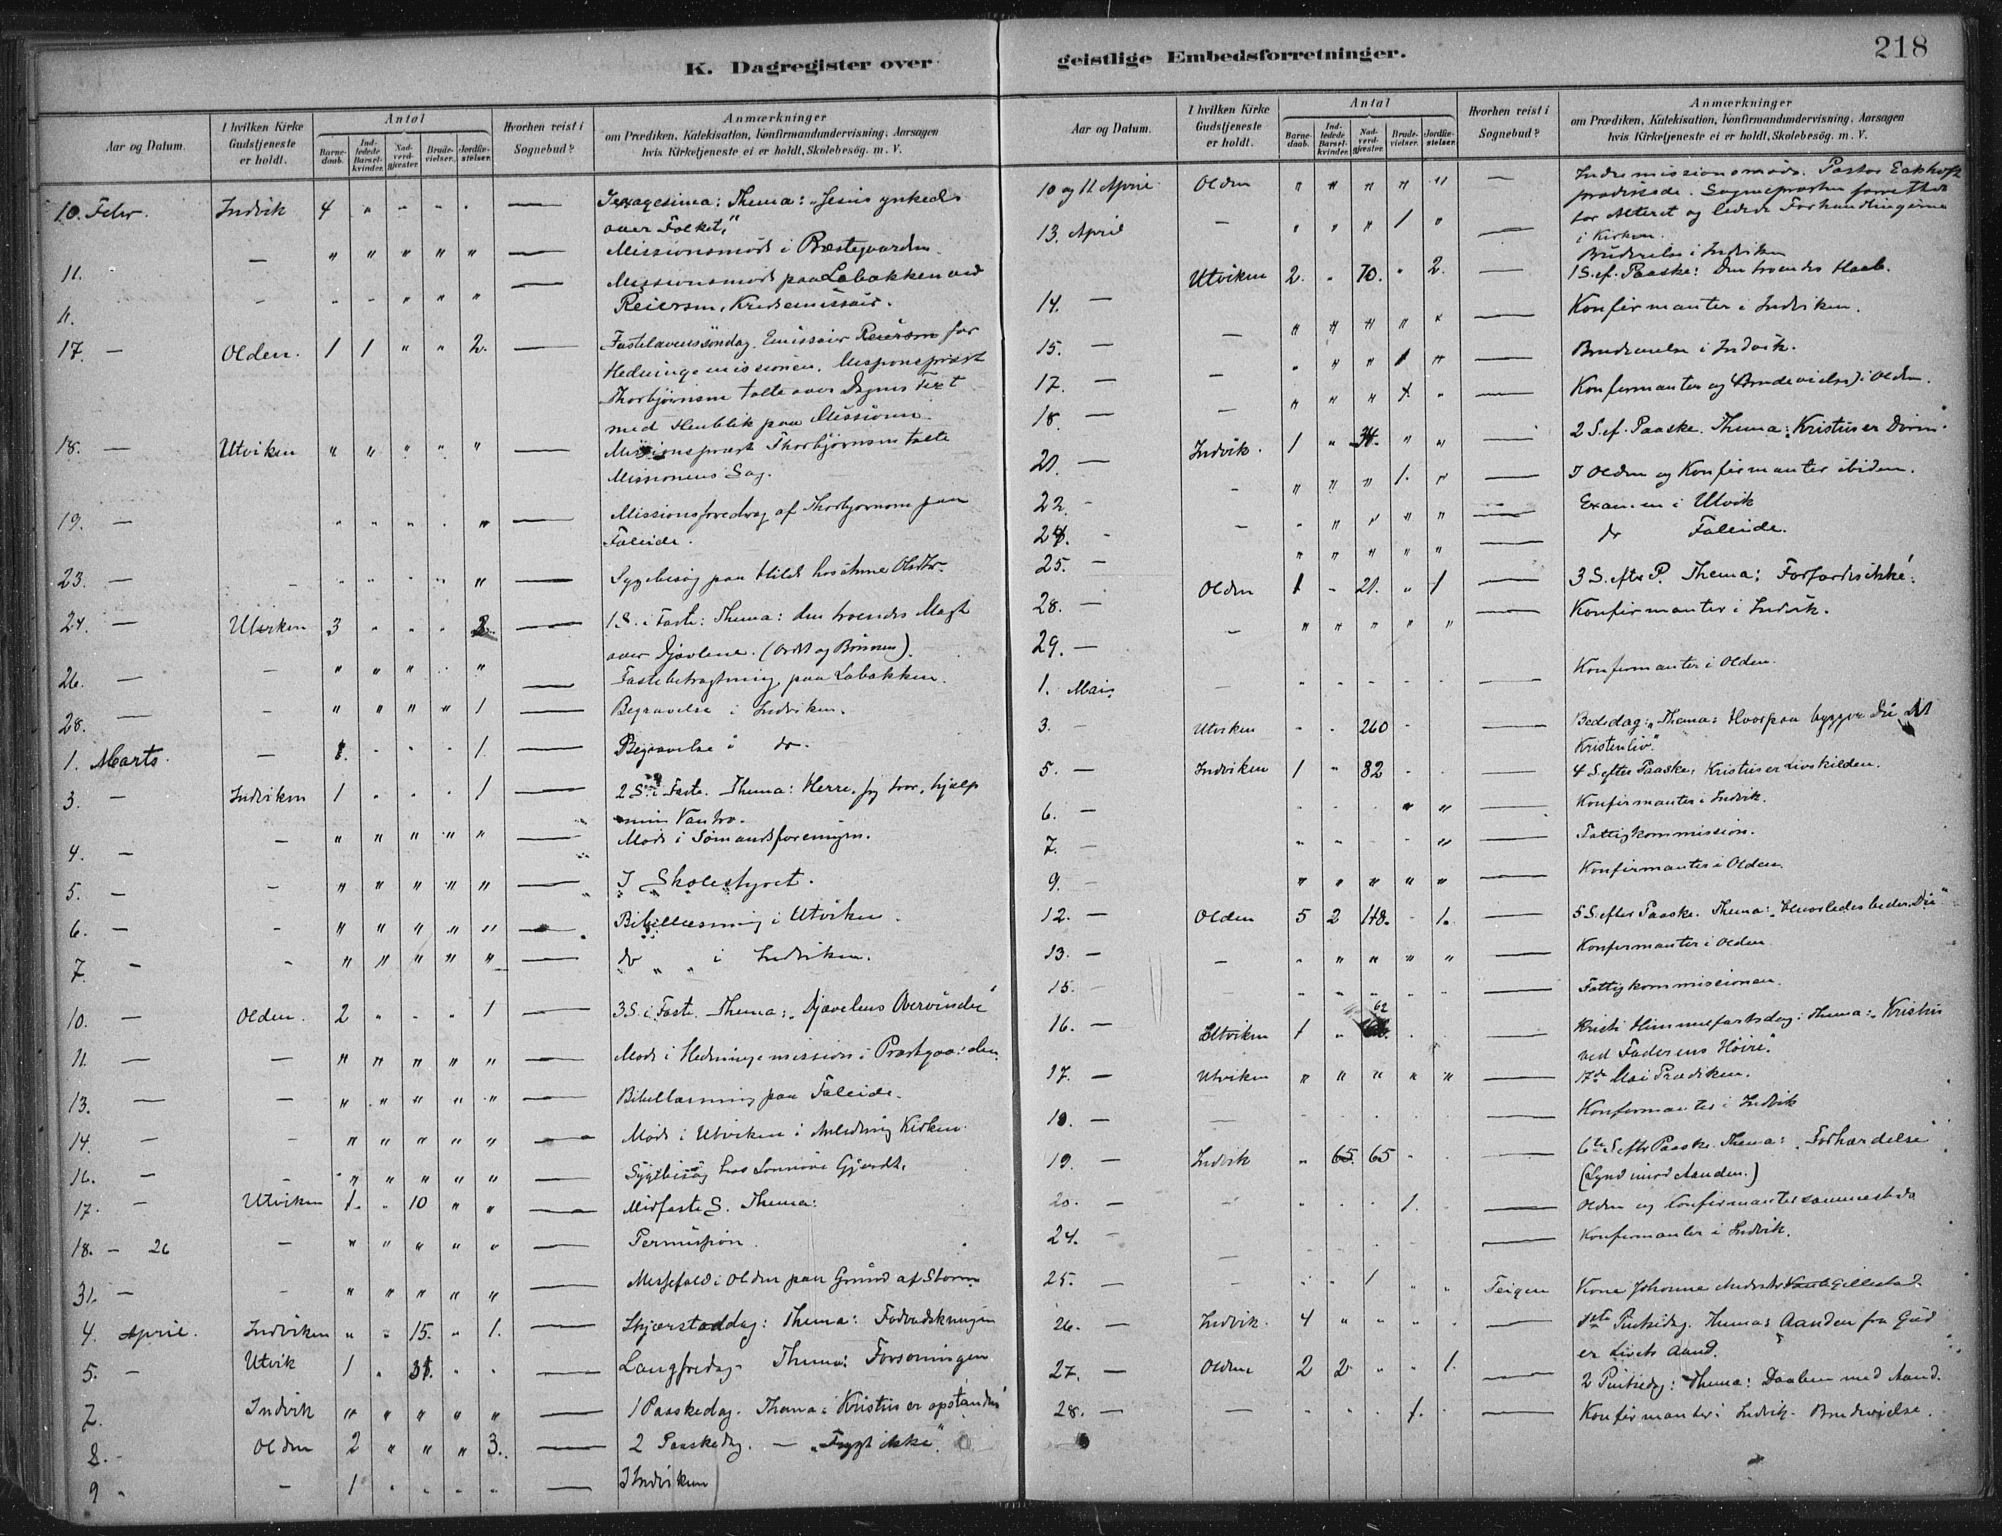 218
K. Dagregister over
geistlige Embedsforretninger.
Aar og Datum.
I hvilken Kirke Gudstjeneste er holdt.
Antal
Barnedaab.
Indledede Barselkvinder.
Nadverdgjæster.
Brudevielser.
Jordfæstelser.
Hvorhen reist i Sognebud?
Anmærkninger
om Prædiken, Katekisation, Konfirmandundervisning, Aarsagen
hvis Kirketjeneste ei er holdt, Skolebesøg. m. V.
10. Febr. Indvik 4 " " " " — Thema: "Jesus ynkedes
over Folket."
11. — " " " " " — Missionsmøde i Præstegaarden.
11. " " " " " " — Missionsmøde paa Labakken ved
Reierson, Kredsemissær.
17. — Olden. 1 1 " " 2. — Fastelavenssøndag. Emissær Reierson for
Hedningemissionen. Missionsprest
Thorbjørnsen talte over Dagens Text
med Henblik paa Missionen.
18. — Utviken " " " " " — Missionsprest Thorbjørnsen talte
Missionens Sag.
19. — " " " " " — Missionsforedrag af Thorbjørnsen paa
Faleide.
23. — " " " " " — Sygebesøg paa Hilde hos
24. — Utviken 3 " " " 2. — 1 S. i Faste: Thema: den troendes Magt
over Djævlene. (Ordet og Bønnen).
26. — — " " " " — Fastebetragtning paa Labakken.
28. — — " " " " 1 — Begravelse i Indviken.
1. Marts. — 1. " " " 1. — Begravelse i do.
3. — Indviken 1 " " " 1 — 2 S. i Faste. Thema: Herre, jeg tror, hjælp
min Vantro.
4. — — " " " " " — Møde i Sømandsforeningen.
5. — — " " " " " — I Skolestyret.
6. — — " " " " " — Bibellæsning i Utviken.
7. — — " " " " " — do " i Indviken.
10. — Olden. 2 " " " 1 — 3 S. i Faste. Thema: "Djævelens Overvinder"
11. — — " " " " " — Møde i Hedningemission i Præstgaarden.
13. — — " " " " " — Bibellæsning paa Faleide.
14. — — " " " " " — Møde i Utviken i Anledning Kirken.
16. — " " " " " — Sygebesøg hos Gjerde.
17. — Utviken 1. " 10 " " — Midfaste S. Thema:
18. — 26 — " " " " " — Permission.
31. — — " " " " " — Messefald i Olden paa Grund af Storm
4. April. Indviken " " 15. " 1. — Skjærstorsdag: Thema: Fodvadskningen
5. — Utvik 1 " 31. " " — Langfredag. Thema: Forsoningen.
7. Indvik " " " " " — 1 Paaskedag. Thema: Kristus er opstanden
8. — Olden 2 " " " 3. — 2 Paaskedag. — "Frygt ikke".
9 " — 1 " " " " — I Indviken
Aar og Datum.
I hvilken Kirke Gudstjeneste er holdt.
Antal
Barnedaab.
Indledede Barselkvinder.
Nadverdgjæster.
Brudevielser.
Jordfæstelser.
Hvorhen reist i Sognebud?
Anmærkninger
om Prædiken, Katekisation, Konfirmandundervisning, Aarsagen
hvis Kirketjeneste ei er holdt, Skolebesøg. m. V.
10 og 11 April Olden " " " " " — Indremissionsmøde. Pastor Eckhoff
prædikede. Sognepræsten forrettede
for Alteret og ledede Forhandlingerne
i Kirken.
13. April — " " " 1 " — Brudevielse i Indviken
14. — Utviken 2. " 70. " 2. — 1 S. ef. Paaske: Den troendes Haab.
15. — — " " " " " — Konfirmanter i Indviken.
17. — — " " " 1 " — Brudevielse i Indvik.
18. — " " " 1. " — Konfirmanter og (Brudevielse) i Olden.
21. — Indvik. 1 " 34. " " — 2 S. ef. Paaske. Thema: "Kristus er Døren"
22. — — " " " 1. " — I Olden og Konfirmanter ibiden.
24. — " " " " " — Examen i Utvik
25. " " " " " — do Faleide.
28. — Olden 1 " 21. " 1 — 3 S. efter P. Thema: Forfærdes ikke.
29. — — " " " " " — Konfirmanter i Indvik.
1. Mai. — " " " " " — Konfirmanter i Olden.
3. — Utviken " " 260 " " — Bededag: Thema: Hvorpaa bygger Du dit
Kristenliv".
5. — Indviken 1 " 82 " " — 4 S. efter Paaske: Kristus er Livskilden.
6. — " " " " " — Konfirmanter i Indvik.
7. — " " " " " — Fattigkommission.
9. — " " " " " — Konfirmanter i Olden.
12. — Olden 5 2 148. " 1. — 5 S. efter Paaske. Thema: "Hvorledes beder Du"
13. — — " " " " " — Konfirmanter i Olden.
15. — " " " " " — Fattigkommissionen.
16. — Utviken 1 " 62 " " — Kristi Himmelfartsdag: Thema: "Kristus
ved Faderens Høire".
17. — Utviken " " " " " — 17de Mai Prædiken.
18. — — " " " " " — Konfirmanter i Indvik
19. — Indvik " 65. 65 " " — 6te S. eftr Paaske. Thema: "Forhærdelse"
(Synd imod Aanden.)
20. — — " " " 1. " — Olden og Konfirmanter sammesteds
24. — — " " " " " — Konfirmanter i Indvik.
25. — — " " 1 " " Teigen Kone Johanne
26. — Indvik. 4 " " " " — 1ste Pintsedag. Thema: Aanden fra Gud
er Livets Aand.
27. — Olden 2 2 " " 1. — 2 Pintsedag: Thema: Daaben med Aand.
28. — — " " " 1. " — Konfirmanter i Indvik. Brudevielse.